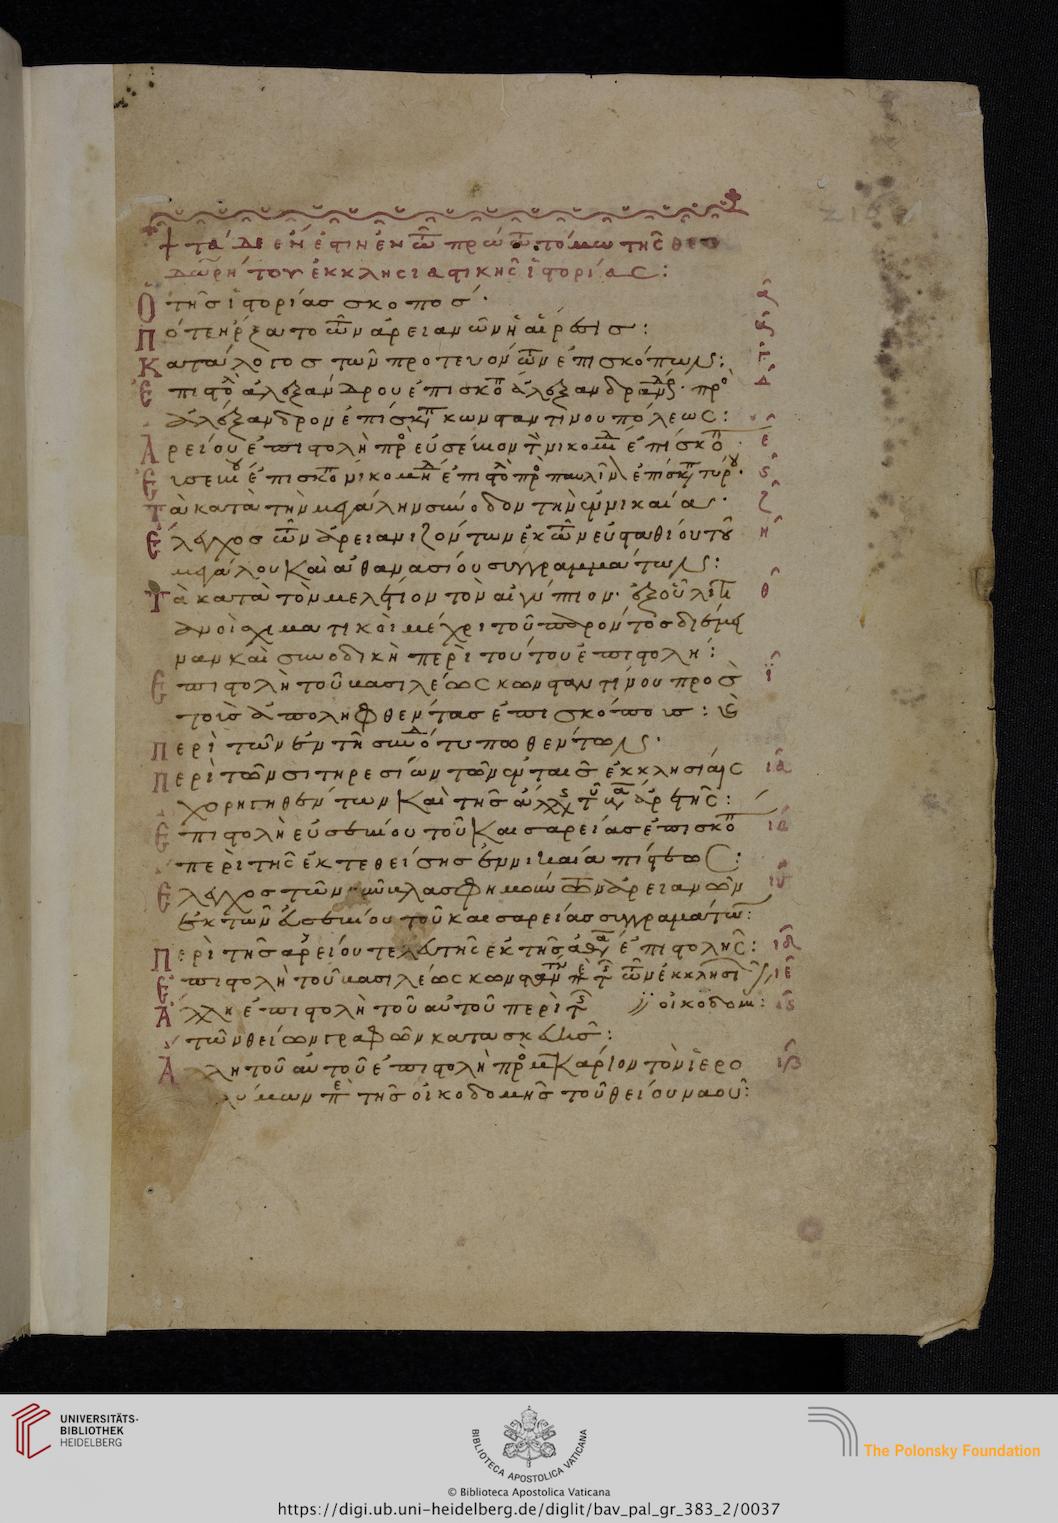 τάδε ἔνεστιν ἐν τῷ πρώτω τόμω τῆς θεο
δωρή του ἐκκλησιαστικῆς ἱστορίας:
Ὁ τῆς ἱστορίας σκοπος· α
Πότε ἤρξατο τῶν ἀρειανῶν ἡ αἵρεσις: β
Κατάλογος τῶν πρωτευόντων ἐπισκόπων: γ
Ἐπιστολ ἀλεξάνδρου ἐπισκοπ ἀλεξανδρ· πρ δ
ἀλέξανδρον ἐπίσκοπ κωνσταντίνου πόλεως:
Ἀρείου ἐπιστολὴ πρ εὐσέβιον τὸν νικομ ἐπίσκοπ ε
Ἐυσεβίου ἐπισκοπ νικομηδ ἐπιστολ πρ παυλῖν ἐπίσκοπ τύρου· ς
Τὰ κατὰ τὴν μεγάλην σύνοδον τὴν ἐν νικαία· ζ
Ἔλεγχος τῶν ἀρειανιζόντων ἐκ τῶν εὐσταθίου τοῦ η
μεγάλου καὶ ἀθανασίου συγγραμμάτων:
Τὰ κατὰ τὸν μελέτιον τὸν αἰγύπτιον· ἐξ οὗ θ
οἱ σχιματικοὶ μέχρι τοῦ παρόντος διέμει
ναν καὶ συνοδικὴ περὶ τούτου ἐπιστολή:
Ἐπιστολὴ τοῦ βασιλέως κωνσταντίνου πρὸς ι
τοὺς ἀπολειφθέντας ἐπισκόπους:
Περὶ τῶν ἐν τῆ συνόδ τυπωθέντων·
Περὶ τῶν σιτηρεσίων τῶν ἐν ταις ἐκκλησίαις ια
χορηγηθέντων καὶ τῆς ἀλλ τοῦ ἀρετῆς:
Ἐπιστολὴ εὐσεβίου τοῦ καισαρείας ἐπισκοπ ιβ
περὶ τῆς ἐκτεθείσης ἐν νικαία πίστεως:
Ἔλεγχος τῶν βλασφημούντων ἀρειανῶν ιγ
ἐκ τῶν εὐσεβίου τοῦ καισαρείας συγγραμάτων:
Περὶ τῆς ἀρείου τελευτῆς ἐκ τῆς ἀθαν ἐπιστολῆς: ιδ
Ἐπιστολὴ τοῦ βασιλέως κωνσταντίν περὶ τ τῶν ἐκκλησι ιε
Ἄλλη ἐπιστολὴ τοῦ αὐτοῦ περὶ τ οἰκοδομ: ις
τῶν θείων γραφῶν κατασκευῆς:
Ἄλλη τοῦ αὐτοῦ ἐπιστολὴ πρ μακάριον τὸν ἱερο ιζ
λύμων περ τῆς οἰκοδομῆς τοῦ θείου ναοῦ:
UNIVERSITÄTS-
BIBLIOTHEK
HEIDELBERG
BIBLIOTECA APOSTOLICA VATICANA
The Polonsky Foundation
© Biblioteca Apostolica Vaticana
https://digi.ub.uni-heidelberg.de/diglit/bav_pal_gr_383_2/0037